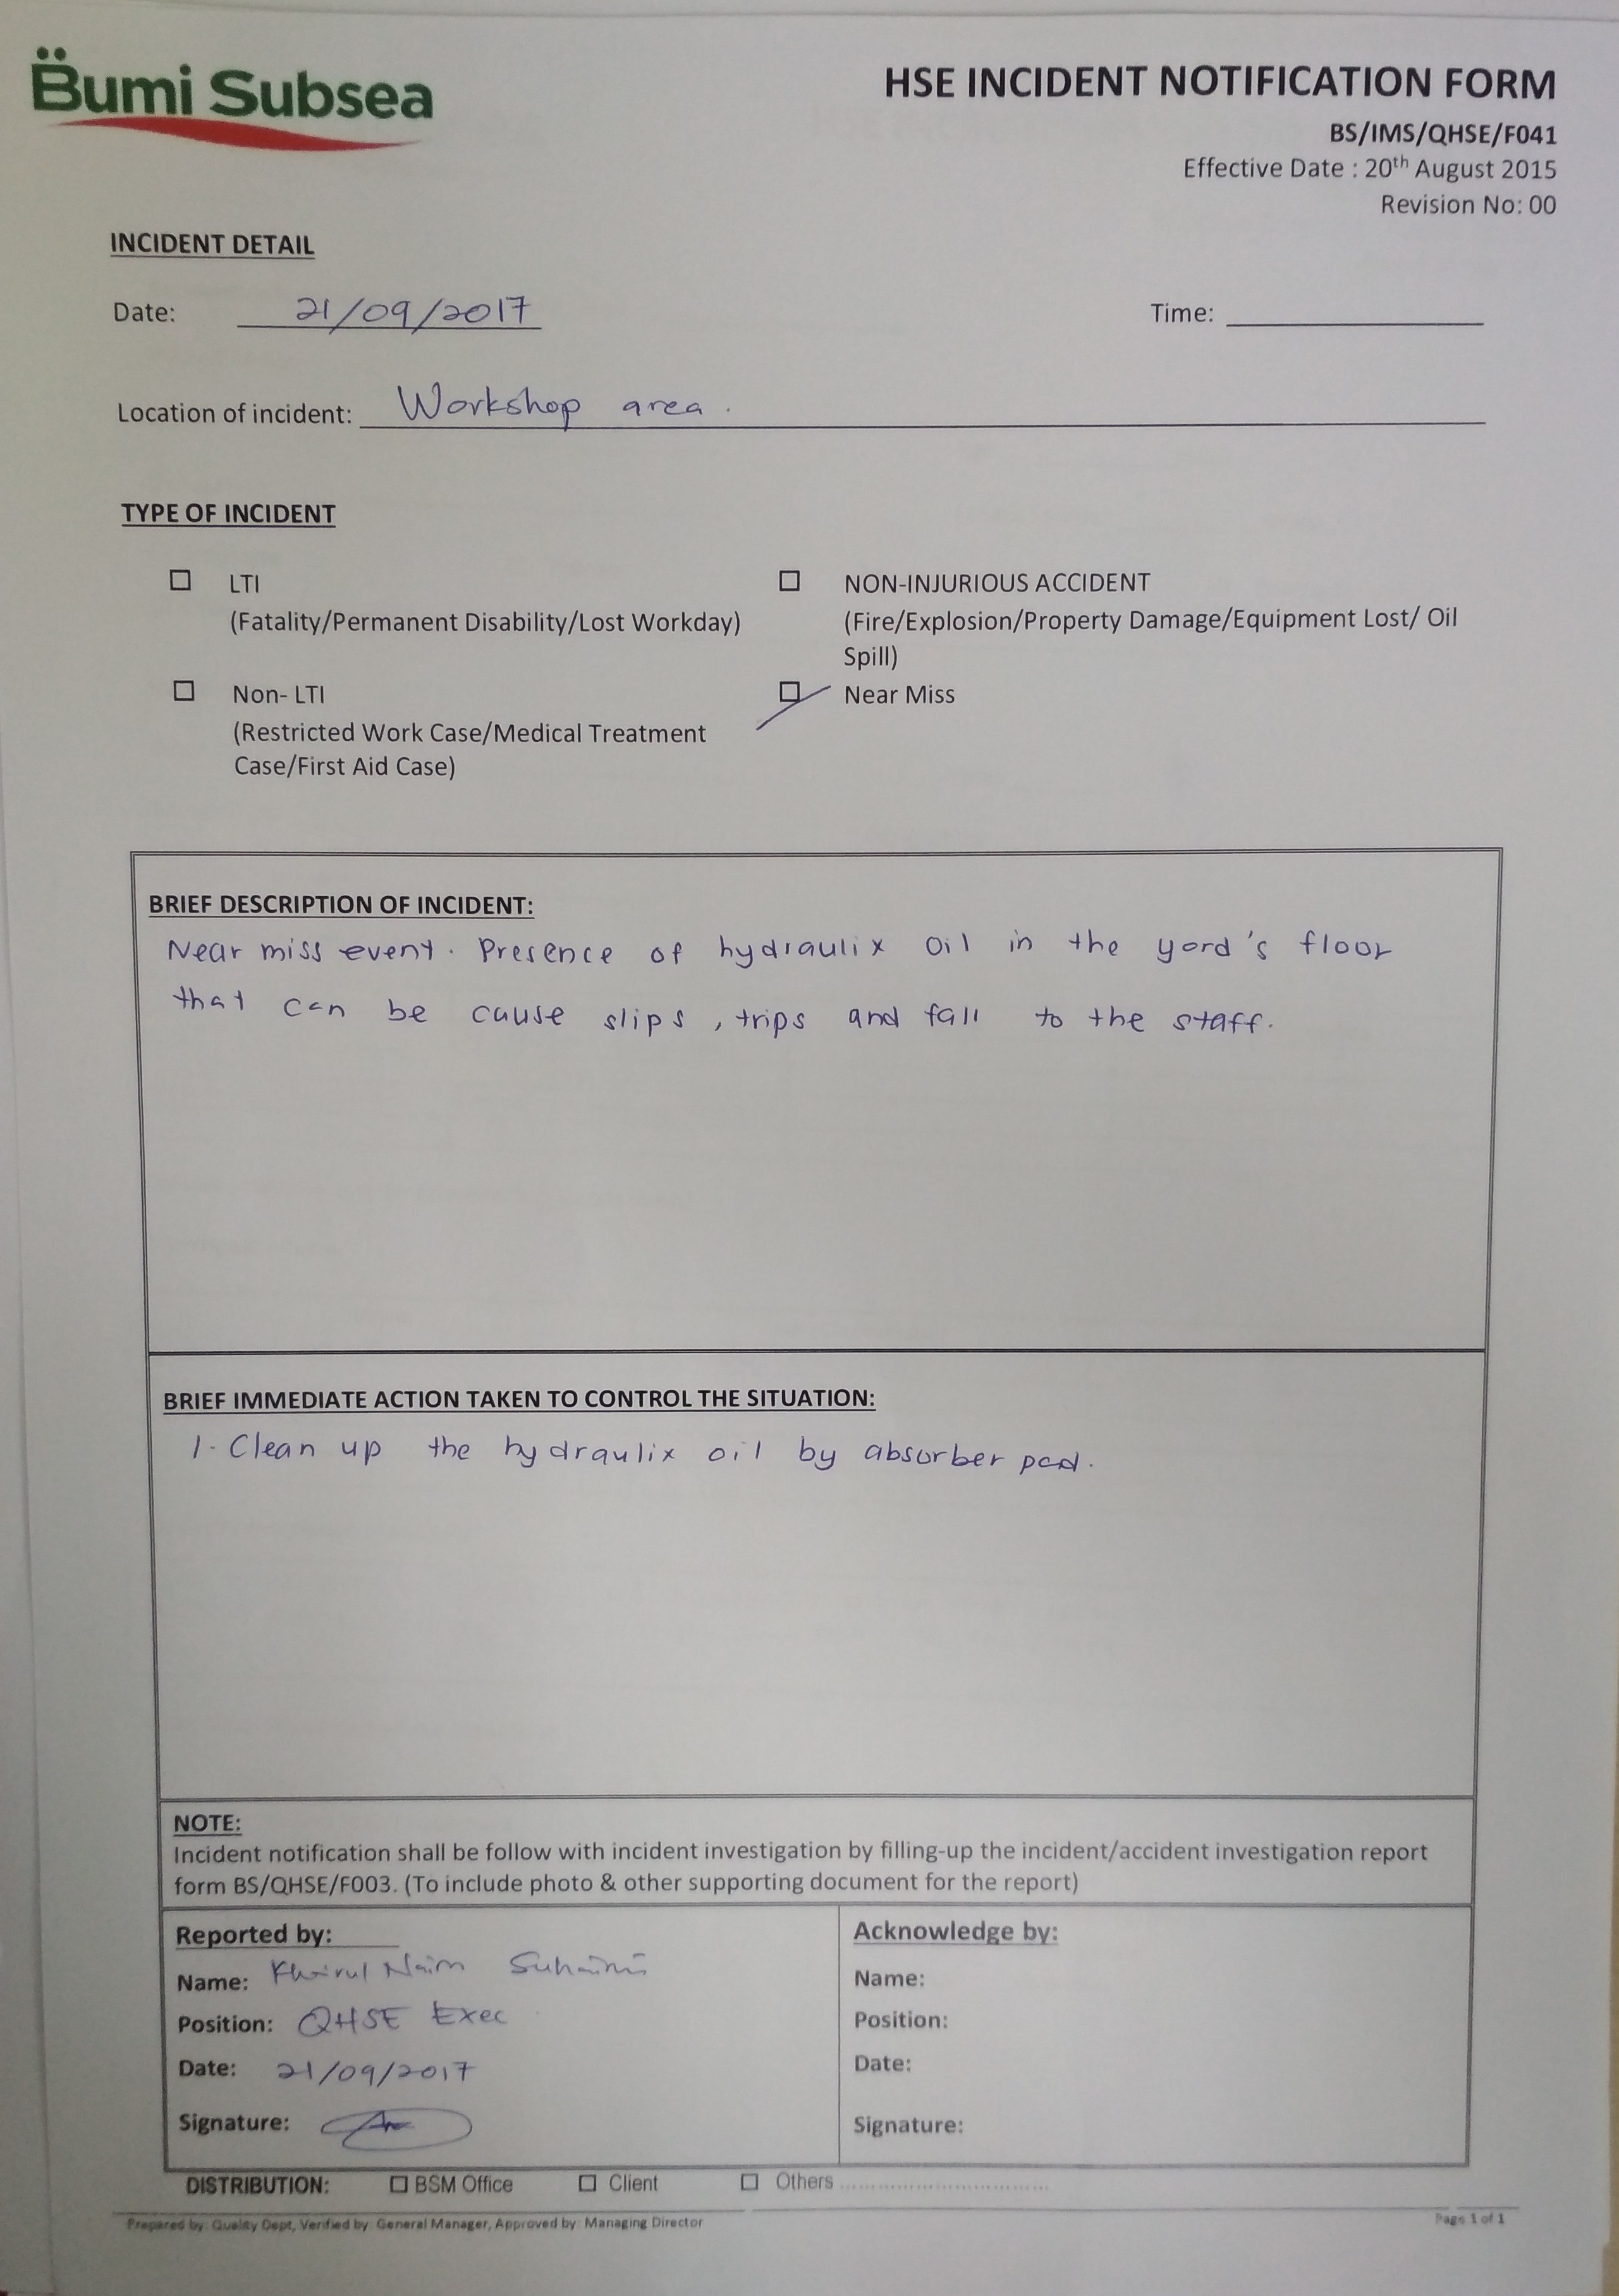 Bumi Subsea
HSE INCIDENT NOTIFICATION FORM
BS/IMS/QHSE/F041
Effective Date : 20th August 2015
Revision No: 00
INCIDENT DETAIL
Date: 21/09/2017 Time:
Location of incident: Workshop area.
TYPE OF INCIDENT
☐ LTI
(Fatality/Permanent Disability/Lost Workday)
☐ NON-INJURIOUS ACCIDENT
(Fire/Explosion/Property Damage/Equipment Lost/ Oil
Spill)
☐ Non- LTI
(Restricted Work Case/Medical Treatment
Case/First Aid Case)
☑ Near Miss
BRIEF DESCRIPTION OF INCIDENT:
Near miss event. Presence of hydraulix oil in the yard's floor
that can be cause slips, trips and fall to the staff.
BRIEF IMMEDIATE ACTION TAKEN TO CONTROL THE SITUATION:
1. Clean up the hydraulix oil by absorber pad.
NOTE:
Incident notification shall be follow with incident investigation by filling-up the incident/accident investigation report
form BS/QHSE/F003. (To include photo & other supporting document for the report)
Reported by:
Name: Khairul Naim Suhaimi
Position: QHSE Exec
Date: 21/09/2017
Signature:
Acknowledge by:
Name:
Position:
Date:
Signature:
DISTRIBUTION: ☐ BSM Office ☐ Client ☐ Others ....................................
Prepared by: Quality Dept, Verified by: General Manager, Approved by: Managing Director
Page 1 of 1